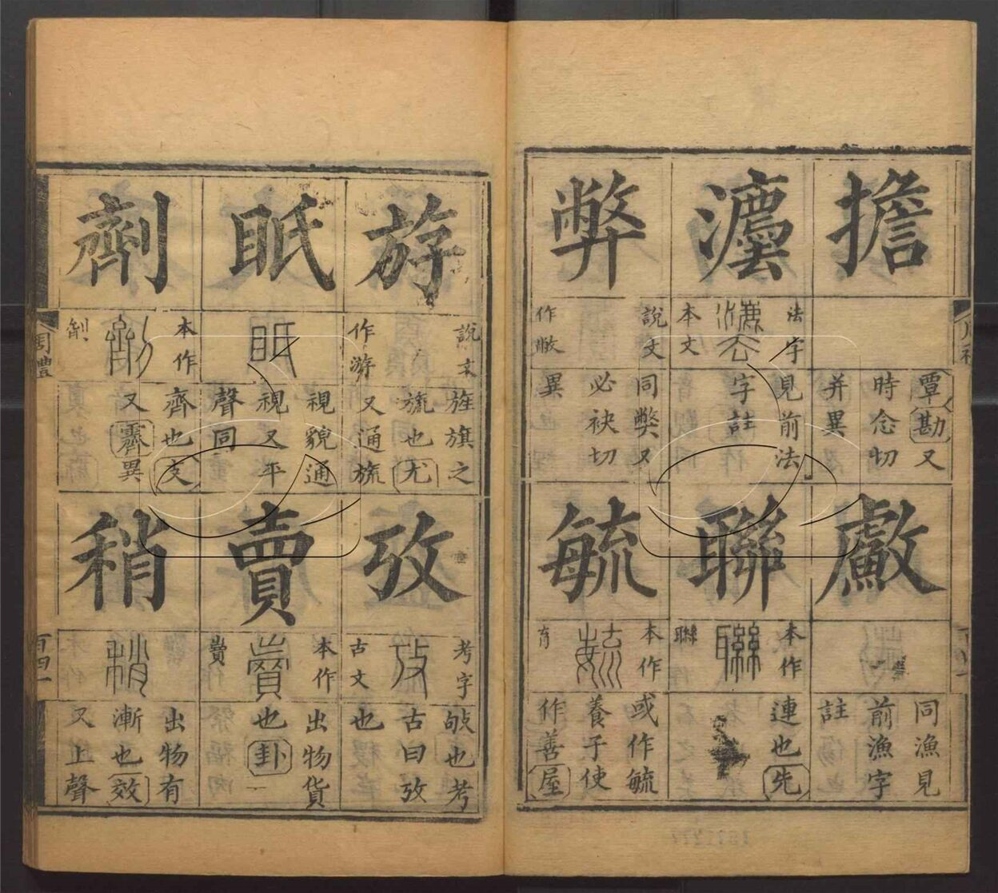 擔
覃勘又
時念切
并異
灋
法字
灋
本文
見前法
字註
弊
說文
作㡀
同獘又
必袂切
異
䱷
同漁見
前漁字
註
聯
本作
聯
聯
連也先
毓
本作
毓
育
或作毓
養子使
作善屋
斿
說文
作游
旌旗之
旒也尤
又通旒
眂
眂
視貌通
視又平
聲同
劑
本作
劑
劑
齊也支
又霽異
攷
考字
攷
古文
敂也考
古曰攷
也
賣
本作
賣
賣
出物貨
也卦
稍
稍
出物有
漸也效
又上聲
周禮
百四一